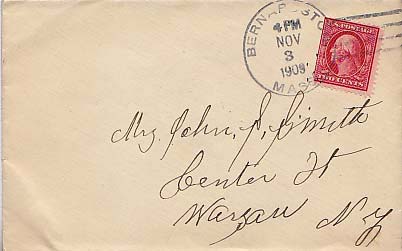 BERNARDSTO
4 PM
NOV
3
1909
MASS
U.S. POSTAGE
TWO CENTS
Mrs. John, P, Smith
Center St
Warsaw N-Y